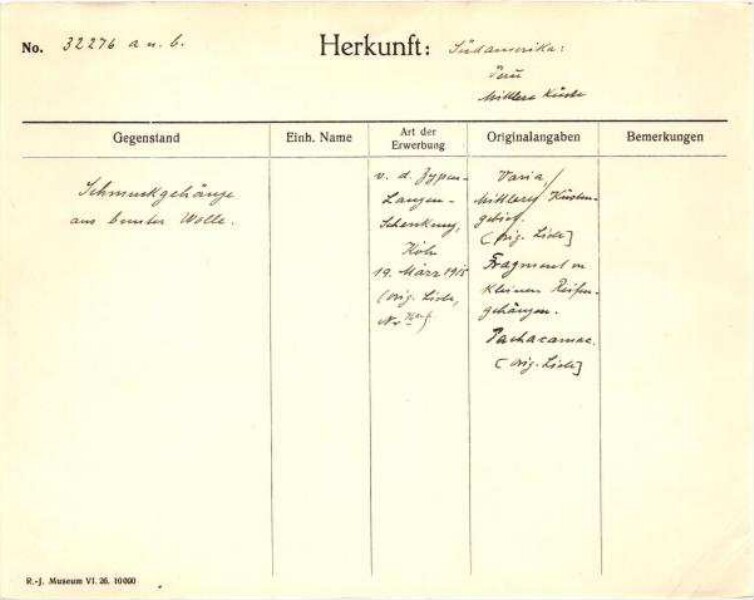 No. 32276 a u. b.
Herkunft: Südamerika:
Peru
Mittlere Küste
Gegenstand
Einh. Name
Art der
Erwerbung
Originalangaben
Bemerkungen
Schmuckgehänge
aus bunter Wolle.
v. d. Zypen-
Langen-
Schenkung,
Köln
19. März 1915
(orig. Liste,
No
Varia,
Mittlere Küsten-
gebiet.
(orig. Liste]
Fragment
kleinen Reifen-
gehängen.
Pachacamac.
(orig. Liste]
R.-J. Museum VI. 26. 10000